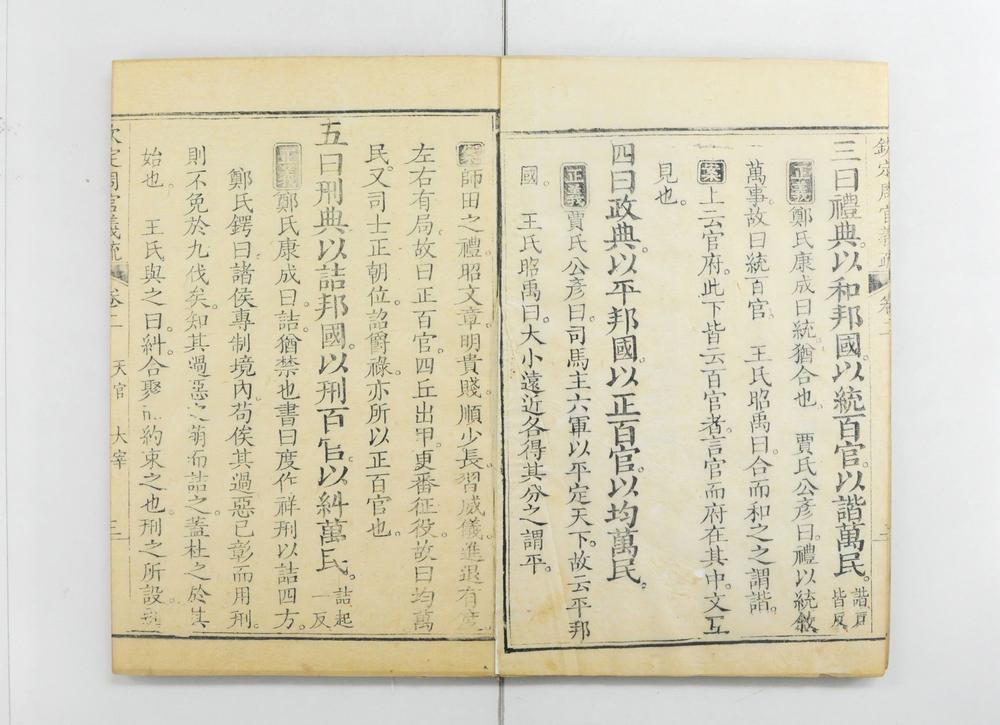 欽定周官義疏 卷二
三曰禮典。以和邦國。以統百官。以諧萬民。諧戸皆反
正義 鄭氏康成曰。統猶合也。 賈氏公彥曰。禮以統敘
萬事。故曰統百官。 王氏昭禹曰。合而和之之謂諧。
案 上云官府。此下皆云百官者。言官而府在其中。文互
見也。
四曰政典。以平邦國。以正百官。以均萬民。
正義 賈氏公彥曰。司馬主六軍以平定天下。故云平邦
國。 王氏昭禹曰。大小遠近各得其分之謂平。
案 師田之禮。昭文章。明貴賤。順少長。習威儀。進退有度。
左右有局。故曰正百官。四丘出甲。更番征役。故曰均萬
民。又司士正朝位。詔爵祿。亦所以正百官也。
五曰刑典。以詰邦國。以刑百官。以糾萬民。詰起一反
正義 鄭氏康成曰。詰猶禁也。書曰。度作祥刑以詰四方。
鄭氏鍔曰。諸侯專制境內。苟俟其過惡已彰而用刑。
則不免於九伐矣。知其過惡之萌而詰之。蓋杜之於其
始也。 王氏與之曰。糾合聚而約束之也。刑之所設
欽定周官義疏 卷二 天官 大宰 三